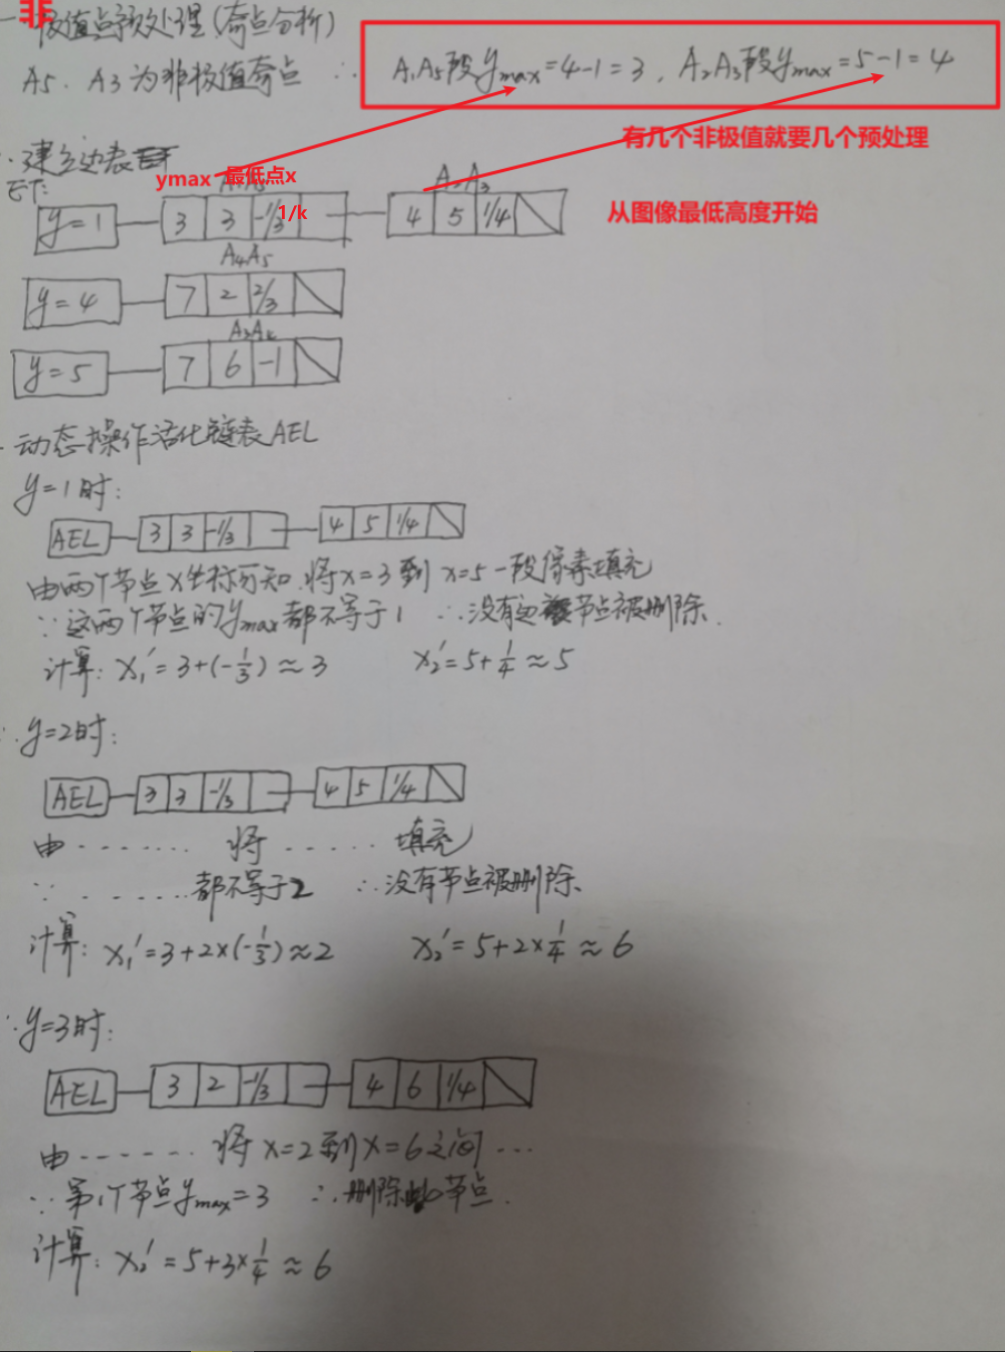 非
极值点预处理(奇点分析)
A5、A3为非极值奇点 ∴ A₁A₅段ymax=4-1=3, A₂A₃段ymax=5-1=4
有几个非极值就要几个预处理
建立边表
ymax 最低点x
ET:
A₂A₃
y=1 3 3 -1/3 4 5 1/4
1/k
从图像最低高度开始
A₄A₅
y=4 7 2 2/3
y=5 7 6 -1
动态操作活化链表AEL
y=1时:
AEL 3 3 -1/3 4 5 1/4
由两个节点x坐标可知,将x=3到x=5一段像素填充
∵这两个节点的ymax都不等于1 ∴没有边节点被删除.
计算: x₁′=3+(-1/3)≈3 x₂′=5+1/4≈5
y=2时:
AEL 3 3 -1/3 4 5 1/4
由······· 将······ 填充
∵ ·······都不等于2 ∴没有节点被删除
计算: x₁′=3+2×(-1/3)≈2 x₂′=5+2×1/4≈6
y=3时:
AEL 3 2 -1/3 4 6 1/4
由······· 将x=2到x=6之间···
∵第1个节点ymax=3 ∴删除此节点.
计算: x₂′=5+3×1/4≈6